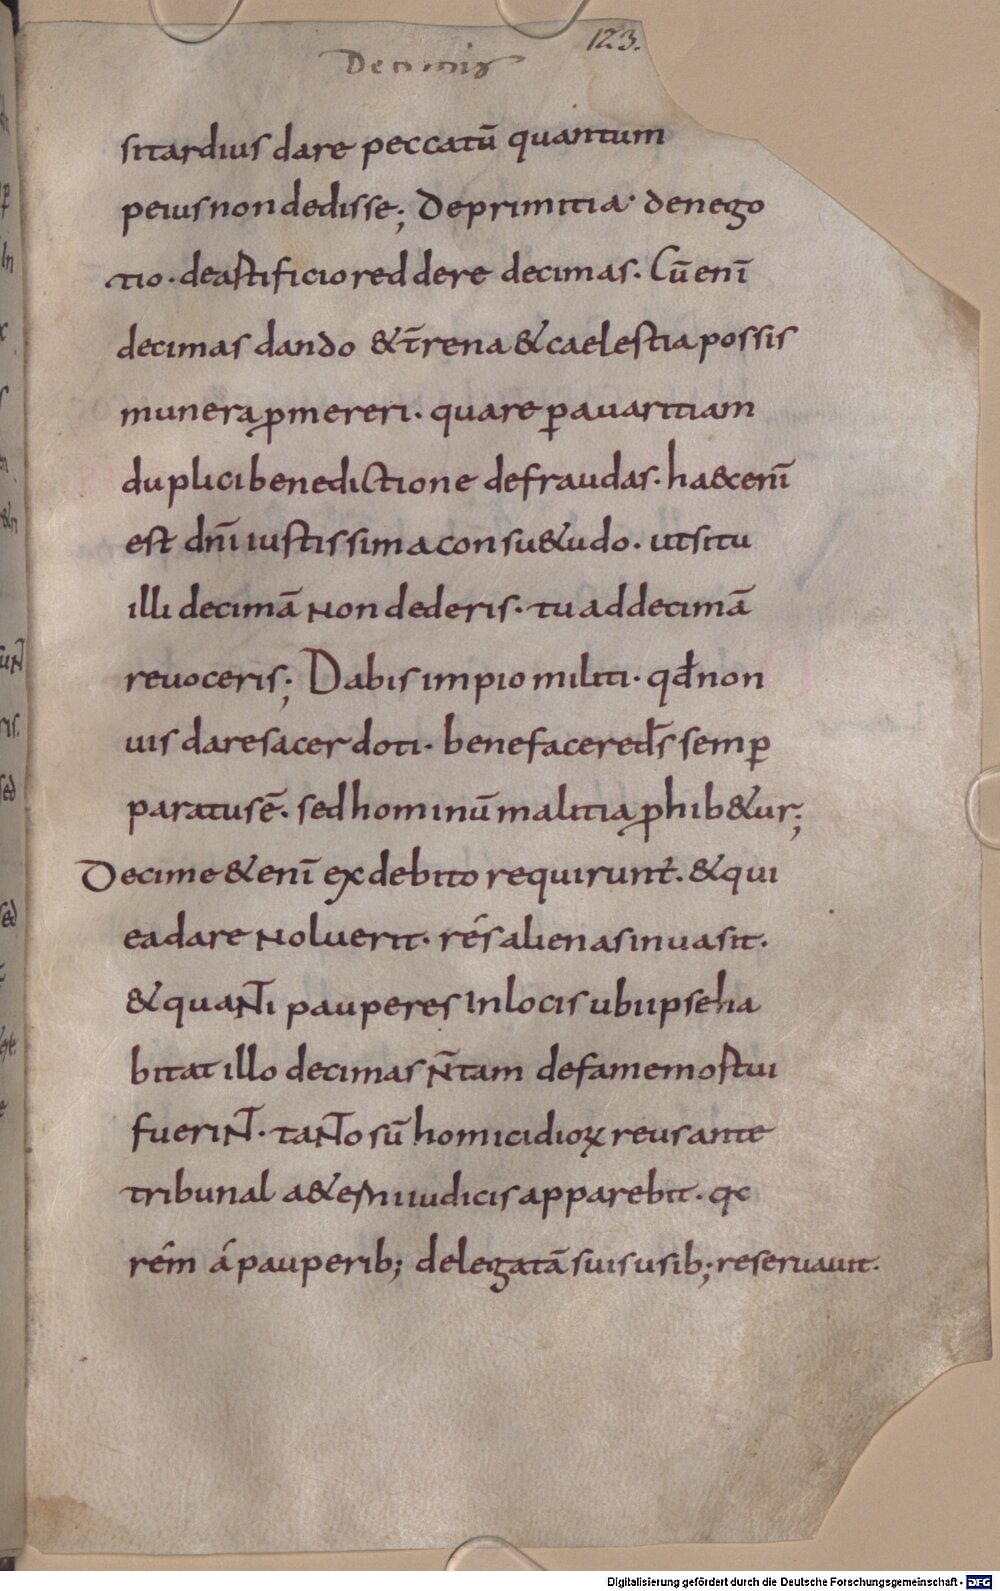 Decimis
123.
si tardius dare peccatū quantum
peius non dedisse; De primitia· de nego
tio· de artificio reddere decimas. Cū enī
decimas dando & t̄rena & caelestia possis
munera ꝓmereri· quare ꝑ auaritiam
duplici benedictione defraudas· haec enī
est dn̄i iustissima consu&udo· ut si tu
illi decimā non dederis· tu ad decimā
reuoceris; Dabis impio militi· qđ non
uis dare sacerdoti· benefacere d̄s semꝑ
paratus ē· sed hominū malitia ꝓhib&ur;
Decime &enī ex debito requirunt̄· & qui
ea dare noluerit· rés alienas inuasit·
& quanti pauperes in locis ubi ipse ha
bitat illo decimas n̄ tam de fame mostui
fuerint· tanto sū homicidioꝝ reus ante
tribunal a&erni iudicis apparebit· qc
rém á pauperib; delegatā suis usib; reseruauit·
Digitalisierung gefördert durch die Deutsche Forschungsgemeinschaft - DFG